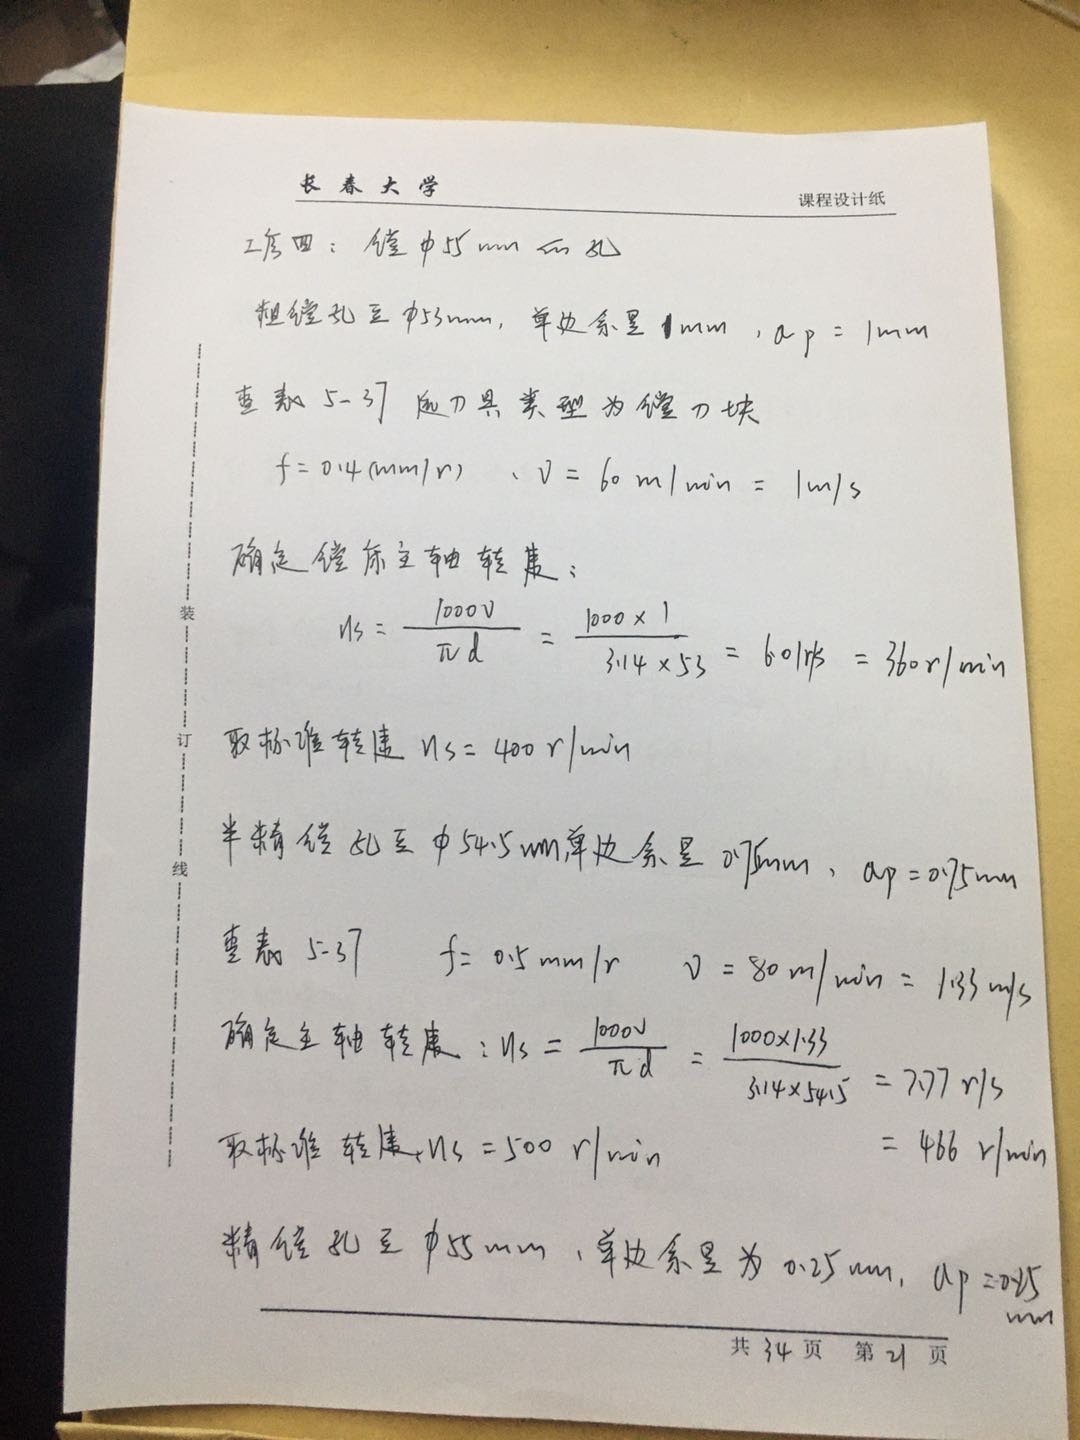 长春大学
课程设计纸
工序四：镗φ55mm的孔
粗镗孔至φ53mm，单边余量1mm，ap=1mm
查表5-37 选刀具类型为镗刀块
f=0.4(mm/r)、v=60m/min=1m/s
确定镗床主轴转速：
ns=1000v/πd=1000×1/3.14×53=6.01r/s=360r/min
取标准转速ns=400r/min
半精镗孔至φ54.5mm单边余量0.75mm，ap=0.75mm
查表5-37 f=0.5mm/r v=80m/min=1.33m/s
确定主轴转速：ns=1000v/πd=1000×1.33/3.14×54.5=7.77r/s
=466r/min
取标准转速，ns=500r/min
精镗孔至φ55mm，单边余量为0.25mm，ap=0.25
mm
共34页 第21页
装
订
线